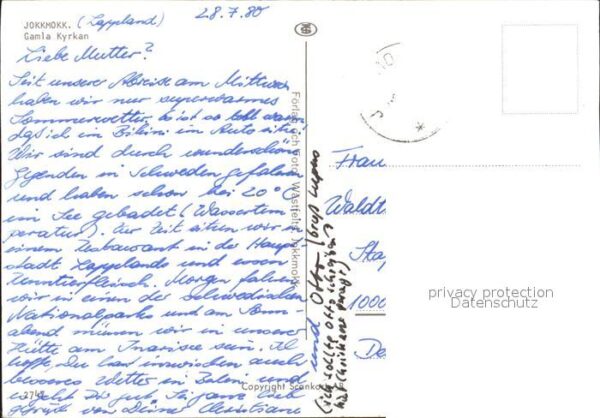 JOKKMOKK. (Lappland)
Gamla Kyrkan
28.7.80
Liebe Mutter!
Seit unserer Abreise am Mittwoch
haben wir nur superwarmes
Sommerwetter. Es ist so toll warm
daß ich im Bikini im Auto sitze.
Wir sind durch wunderschöne
Gegenden in Schweden gefahren
und haben schon bei 20°C
im See gebadet (Wassertem
peratur). Zur Zeit sitzen wir in
einem Restaurant in der Haupt
stadt Lapplands und essen
Renntierfleisch. Morgen fahren
wir in einen der schwedischen
Nationalparks und am Sonn
abend müssen wir in unserer
Hütte am Inarisee sein. Ich
hoffe, Du hast inzwischen auch
besseres Wetter in Berlin und
es geht Dir gut. Sei ganz lieb
gegrüßt von Deiner Christiane
und Otto
(ich sollte Otto schreiben
Förlag och Foto: Wästfelts, Jokkmokk
Copyright Scankort AB
Frau
Waldt
1000
privacy protection
Datenschutz